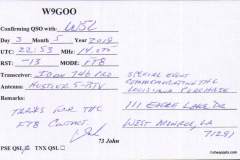 W9GOO
Confirming QSO with: W5L
Day 3 Month 5 Year 2018
UTC: 22:53 MHz 14.070
RST: -13 Mode FT8
Transceiver: Icom 746 Pro
Antenna: Hustler 5-BTV
Remarks:
Thanks for the
FT8 Contact.
73 John
PSE QSL TNX QSL
Special Event
Commemorating the
Louisiana Purchase
111 Lake Dr
West Monroe, LA
71291